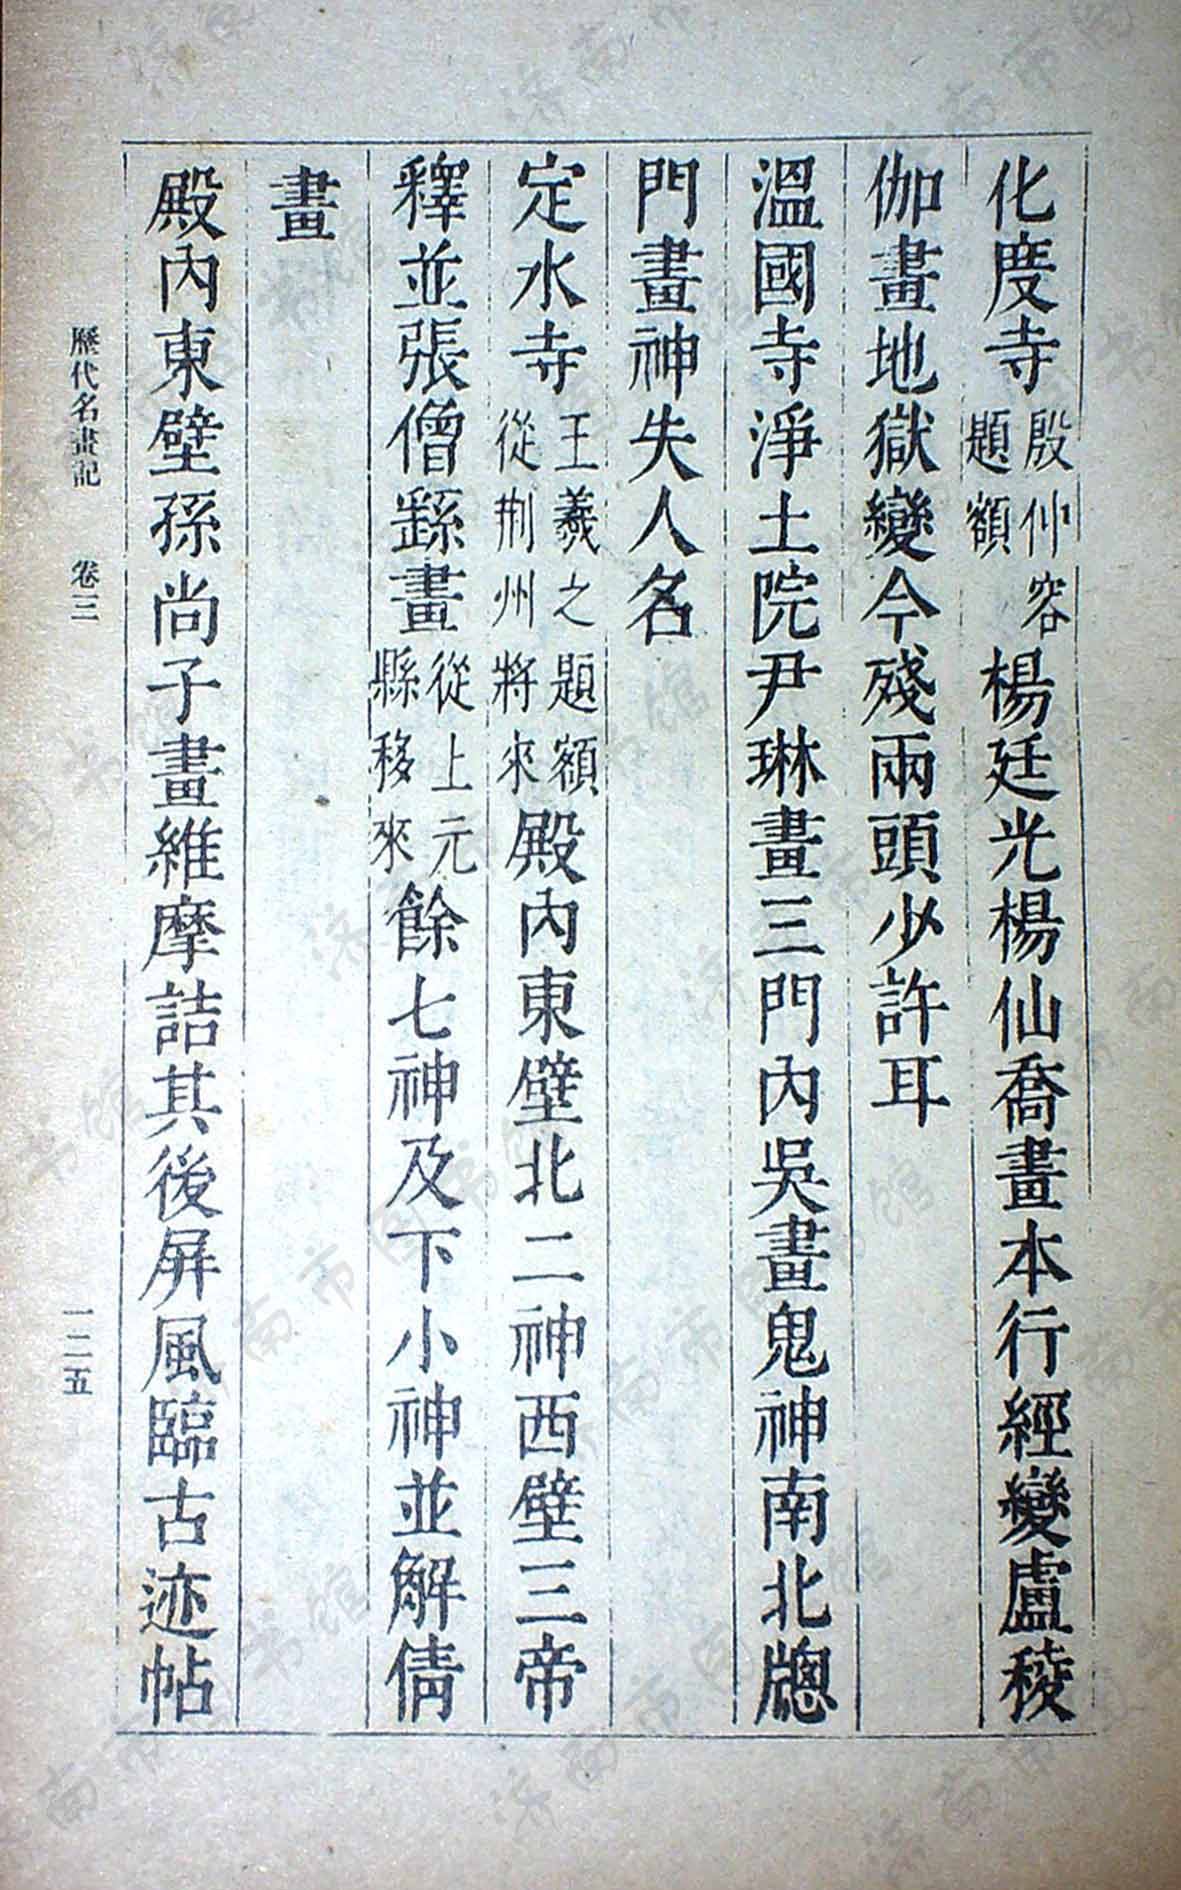 化度寺殷仲容題額楊廷光楊仙喬畫本行經變盧稜
伽畫地獄變今殘兩頭少許耳
溫國寺淨土院尹琳畫三門內吳畫鬼神南北牎
門畫神失人名
定水寺王羲之題額從荆州將來殿內東壁北二神西壁三帝
釋並張僧繇畫從上元縣移來餘七神及下小神並解倩
畫
殿內東壁孫尚子畫維摩詰其後屏風臨古迹帖
歷代名畫記 卷三 一二五
济南市图书馆